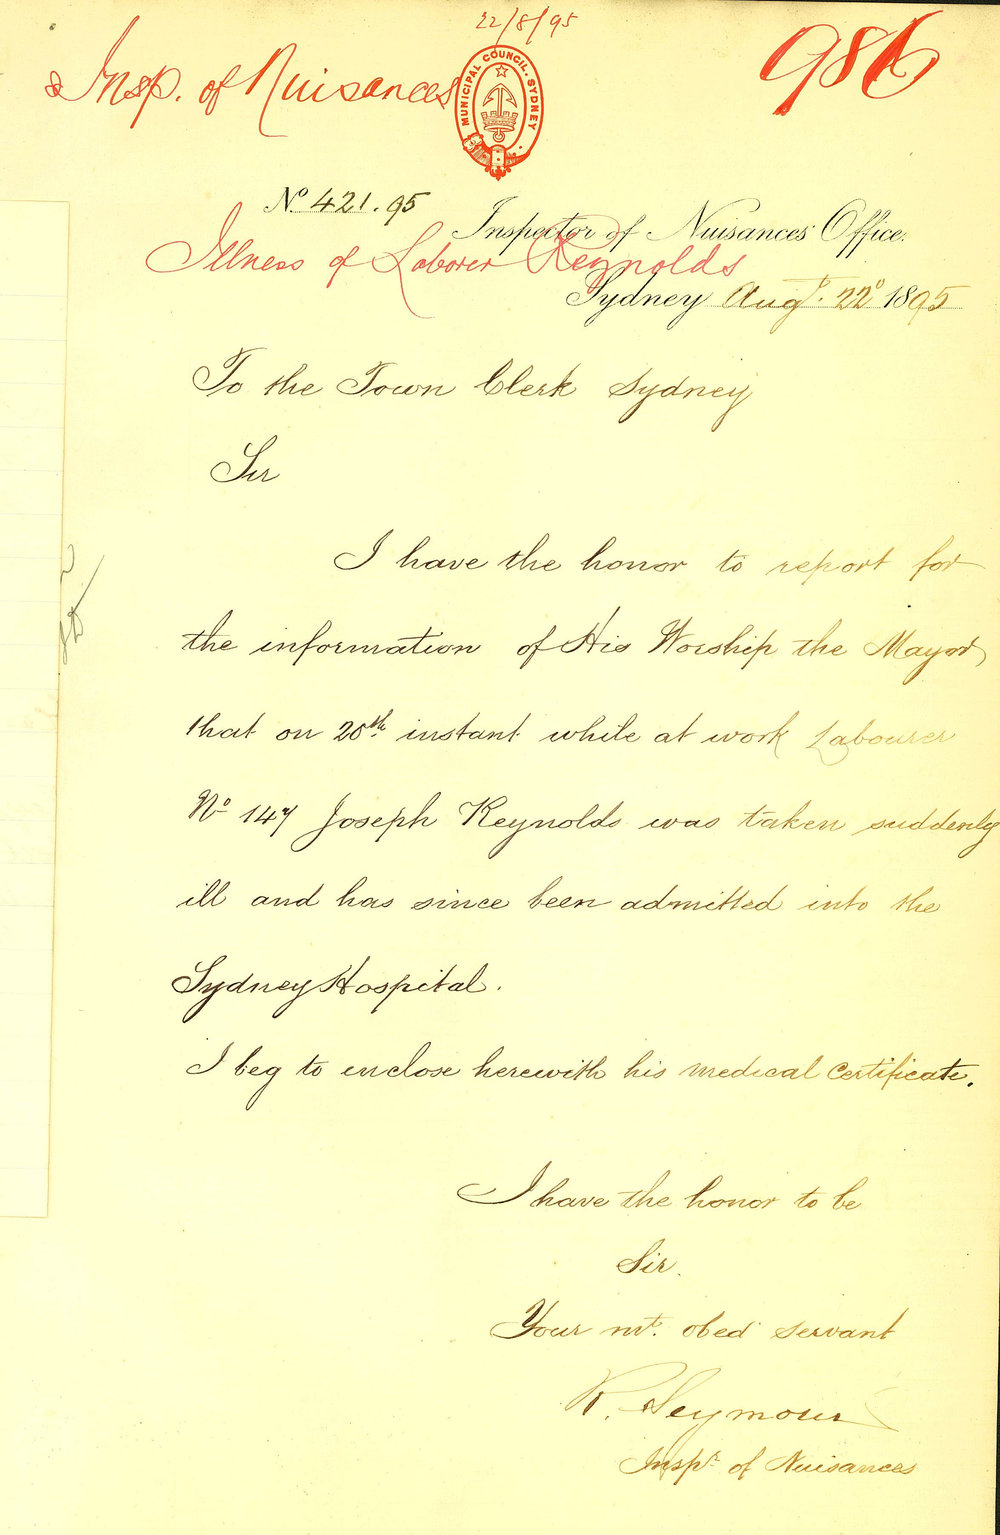 22/8/95
Insp. of Nuisances
986
MUNICIPAL COUNCIL. SYDNEY
No 421.95
Inspector of Nuisances Office.
Illness of Laborer Reynolds
Sydney Augt. 22d 1895
To the Town Clerk Sydney
Sir
I have the honor to report for
the information of His Worship the Mayor
that on 20th instant while at work Labourer
No 147 Joseph Reynolds was taken suddenly
ill and has since been admitted into the
Sydney Hospital.
I beg to enclose herewith his medical certificate.
I have the honor to be
Sir.
Your mt. obed servant
R. Seymour
Inspr. of Nuisances